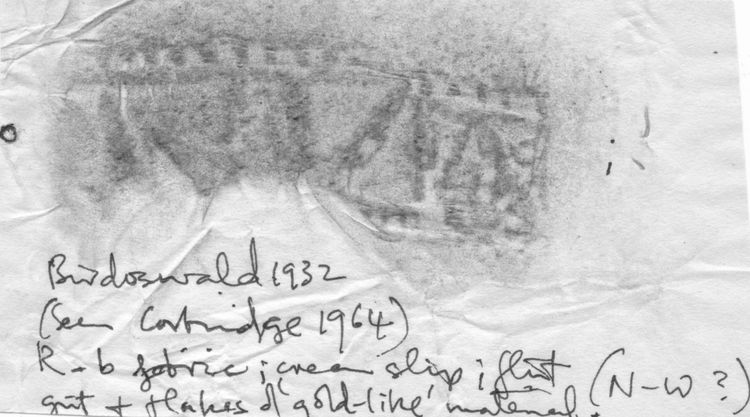 Birdoswald 1932
(Seen Corbridge 1964)
R-b fabric; cream slip; flint (N-W ?)
grit + flakes of 'gold-like' material.